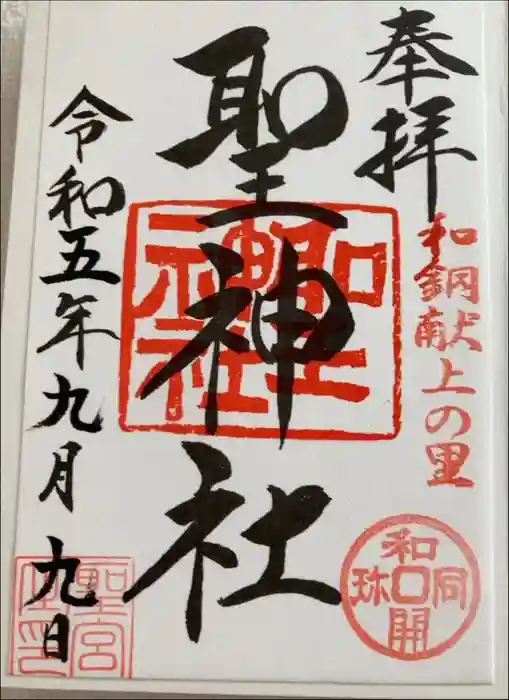 奉拝
和銅献上の里
和同開珎
聖神社
聖神社
令和五年九月九日
聖宮